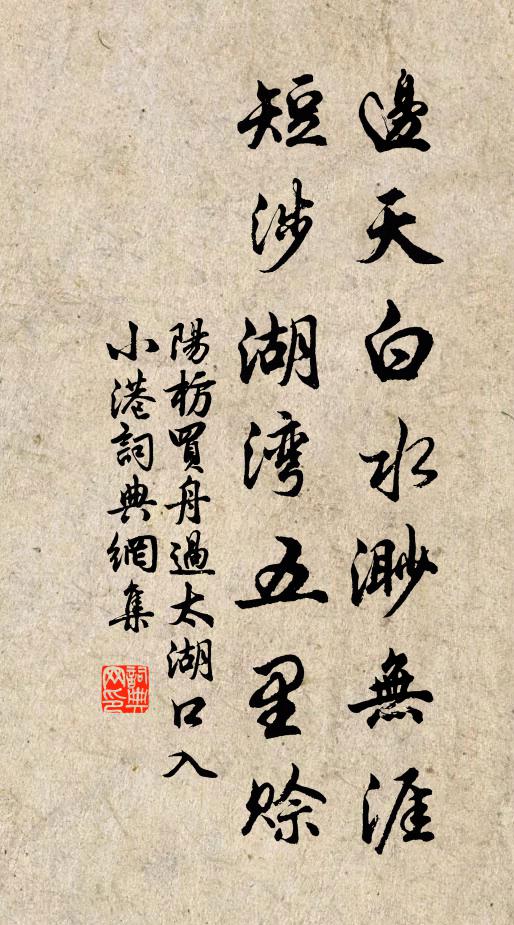 邊天白水渺無涯
短涉湖灣五里賒
陽枋買舟過太湖口入
小港詞典網集
詞典网印